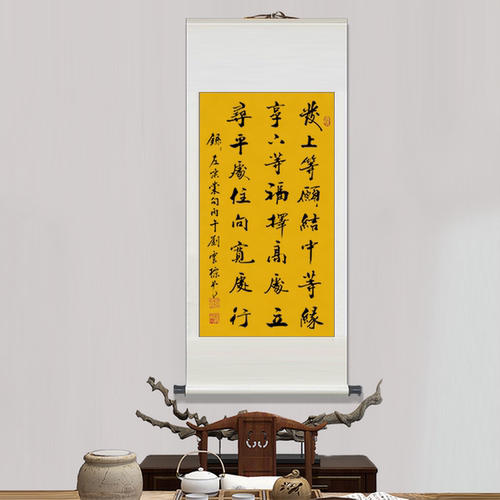 發上等願結中等緣
享下等福擇高處立
尋平處住向寬處行
錄左宗棠句 劉雲